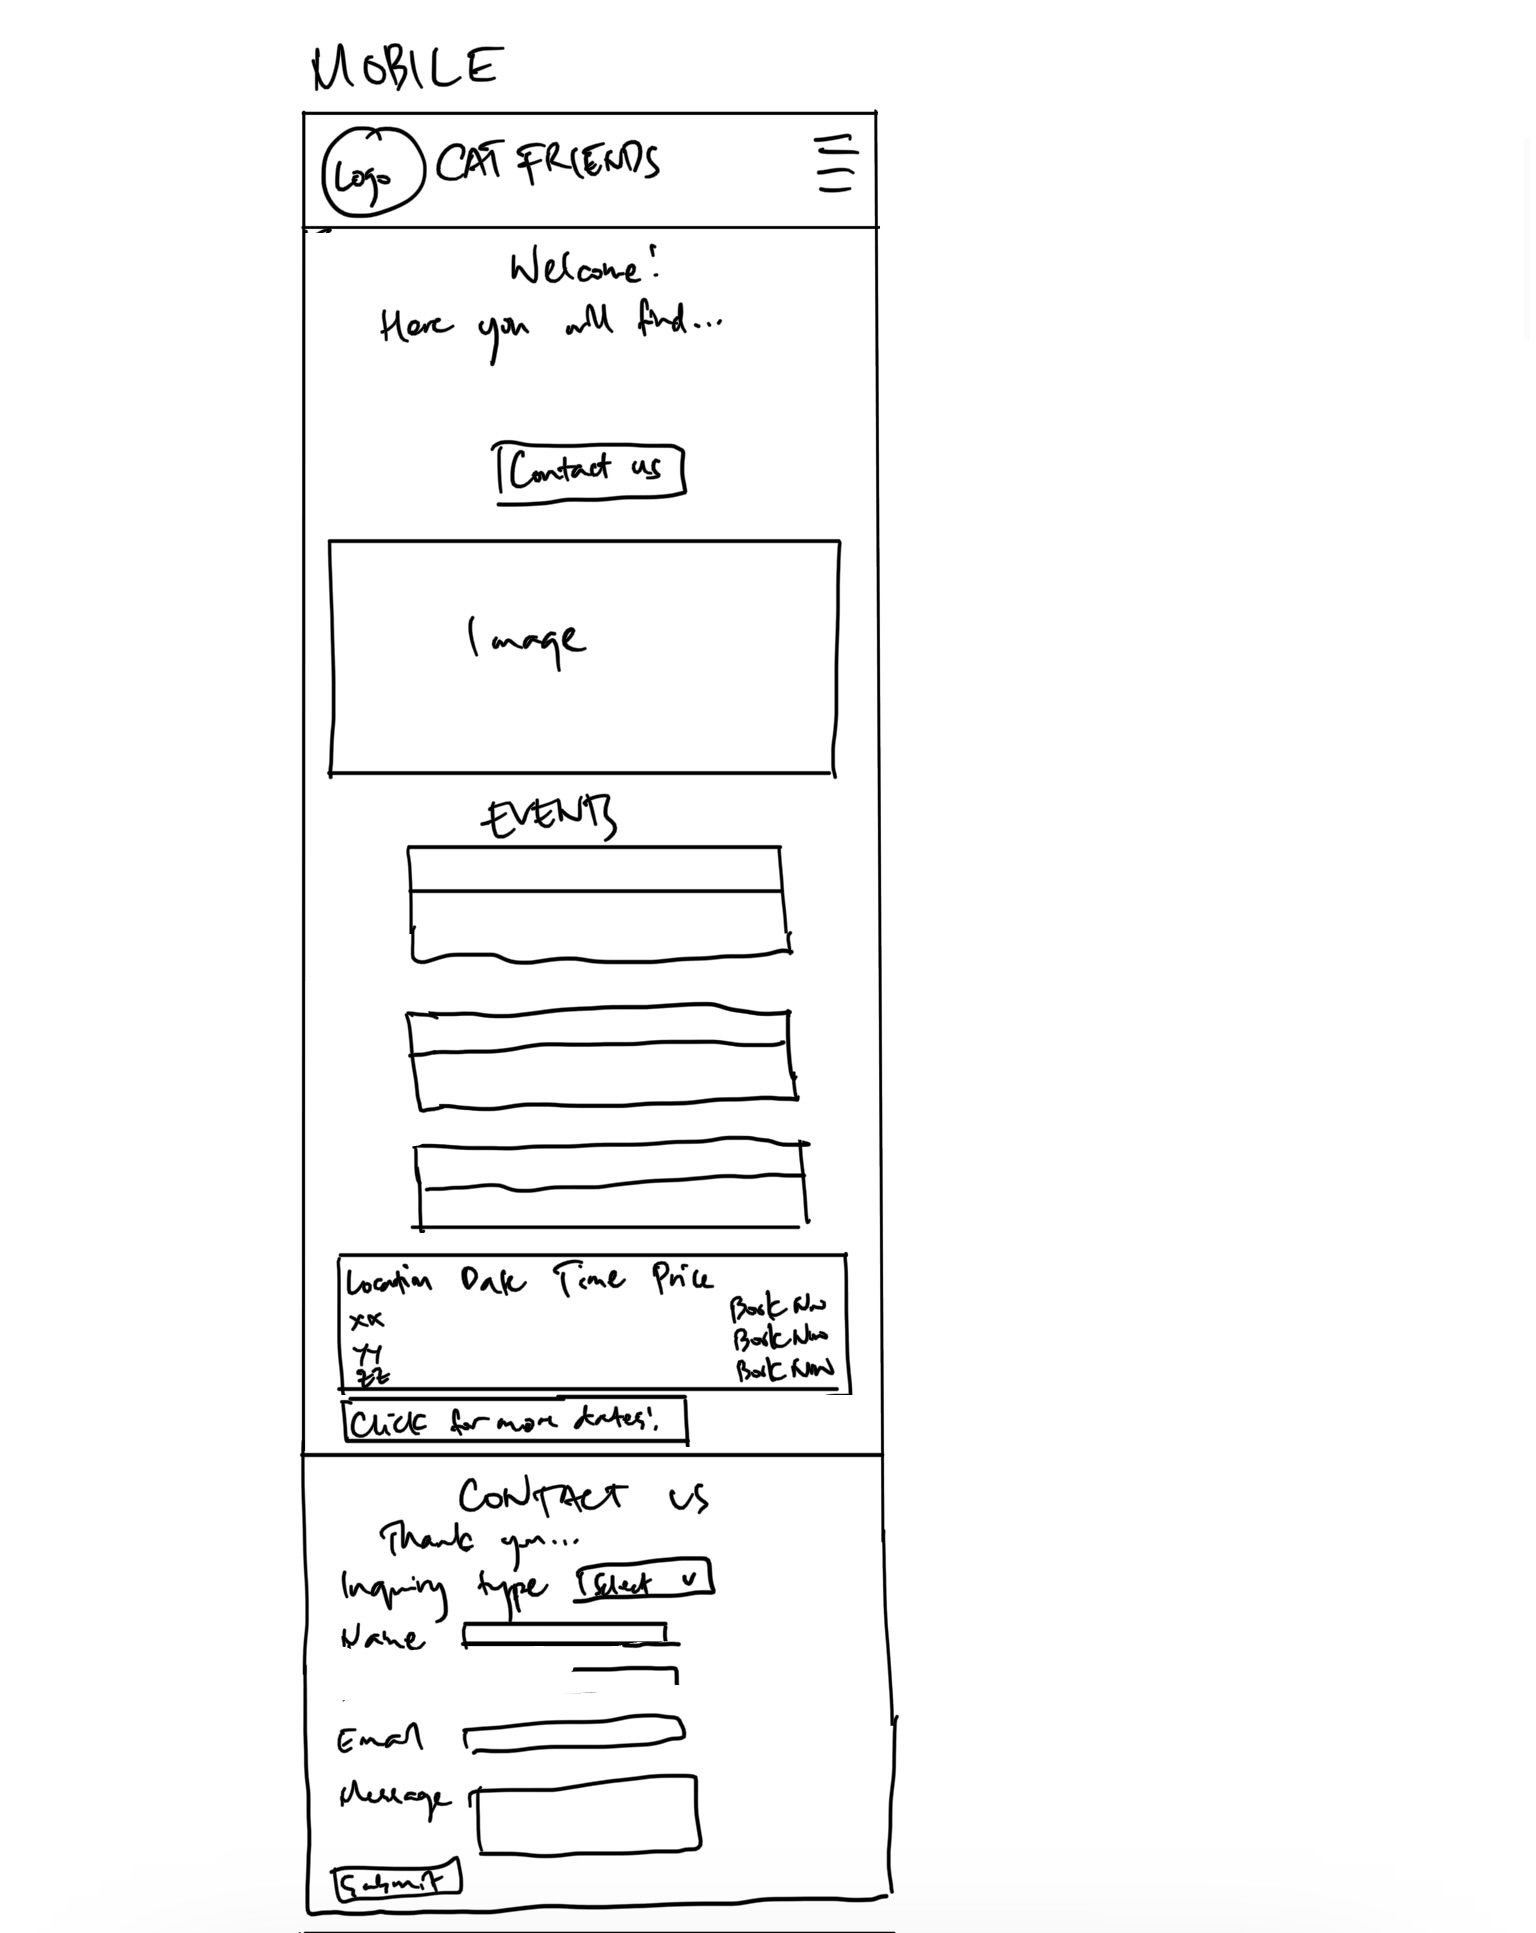 MOBILE
Logo CAT FRIENDS
Welcome!
Here you will find...
Contact us
Image
EVENTS
Location Date Time Price
xx Book Now
yy Book Now
zz Book Now
Click for more dates!
CONTACT US
Thank you...
Inquiry type Select v
Name
Email
Message
Submit